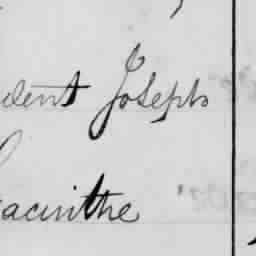 dent Joseph
acinthe